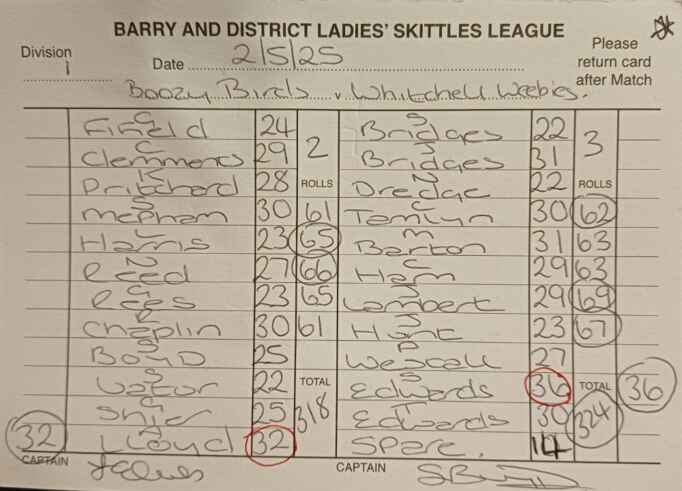 BARRY AND DISTRICT LADIES' SKITTLES LEAGUE
Division 1 Date 2/5/25 Please return card after Match
Boozy Birds v Whitchell Weebles.
G Field 24 2 S Bridges 22 3
C Clemments 29 J Bridges 31
K Pritchard 28 ROLLS N Dredge 22 ROLLS
S Mepham 30 61 C Tamlyn 30 62
L Harris 23 65 M Barton 31 63
N Reed 27 66 C Ham 29 63
G Rees 23 65 J Lambert 29 69
R Chaplin 30 61 J Hunt 23 67
S Boyd 25 P Wescall 27
S 22 TOTAL S Edwards 36 TOTAL 36
G 25 318 T Edwards 30 324
32 A Lloyd 32 Spare. 14
CAPTAIN CAPTAIN